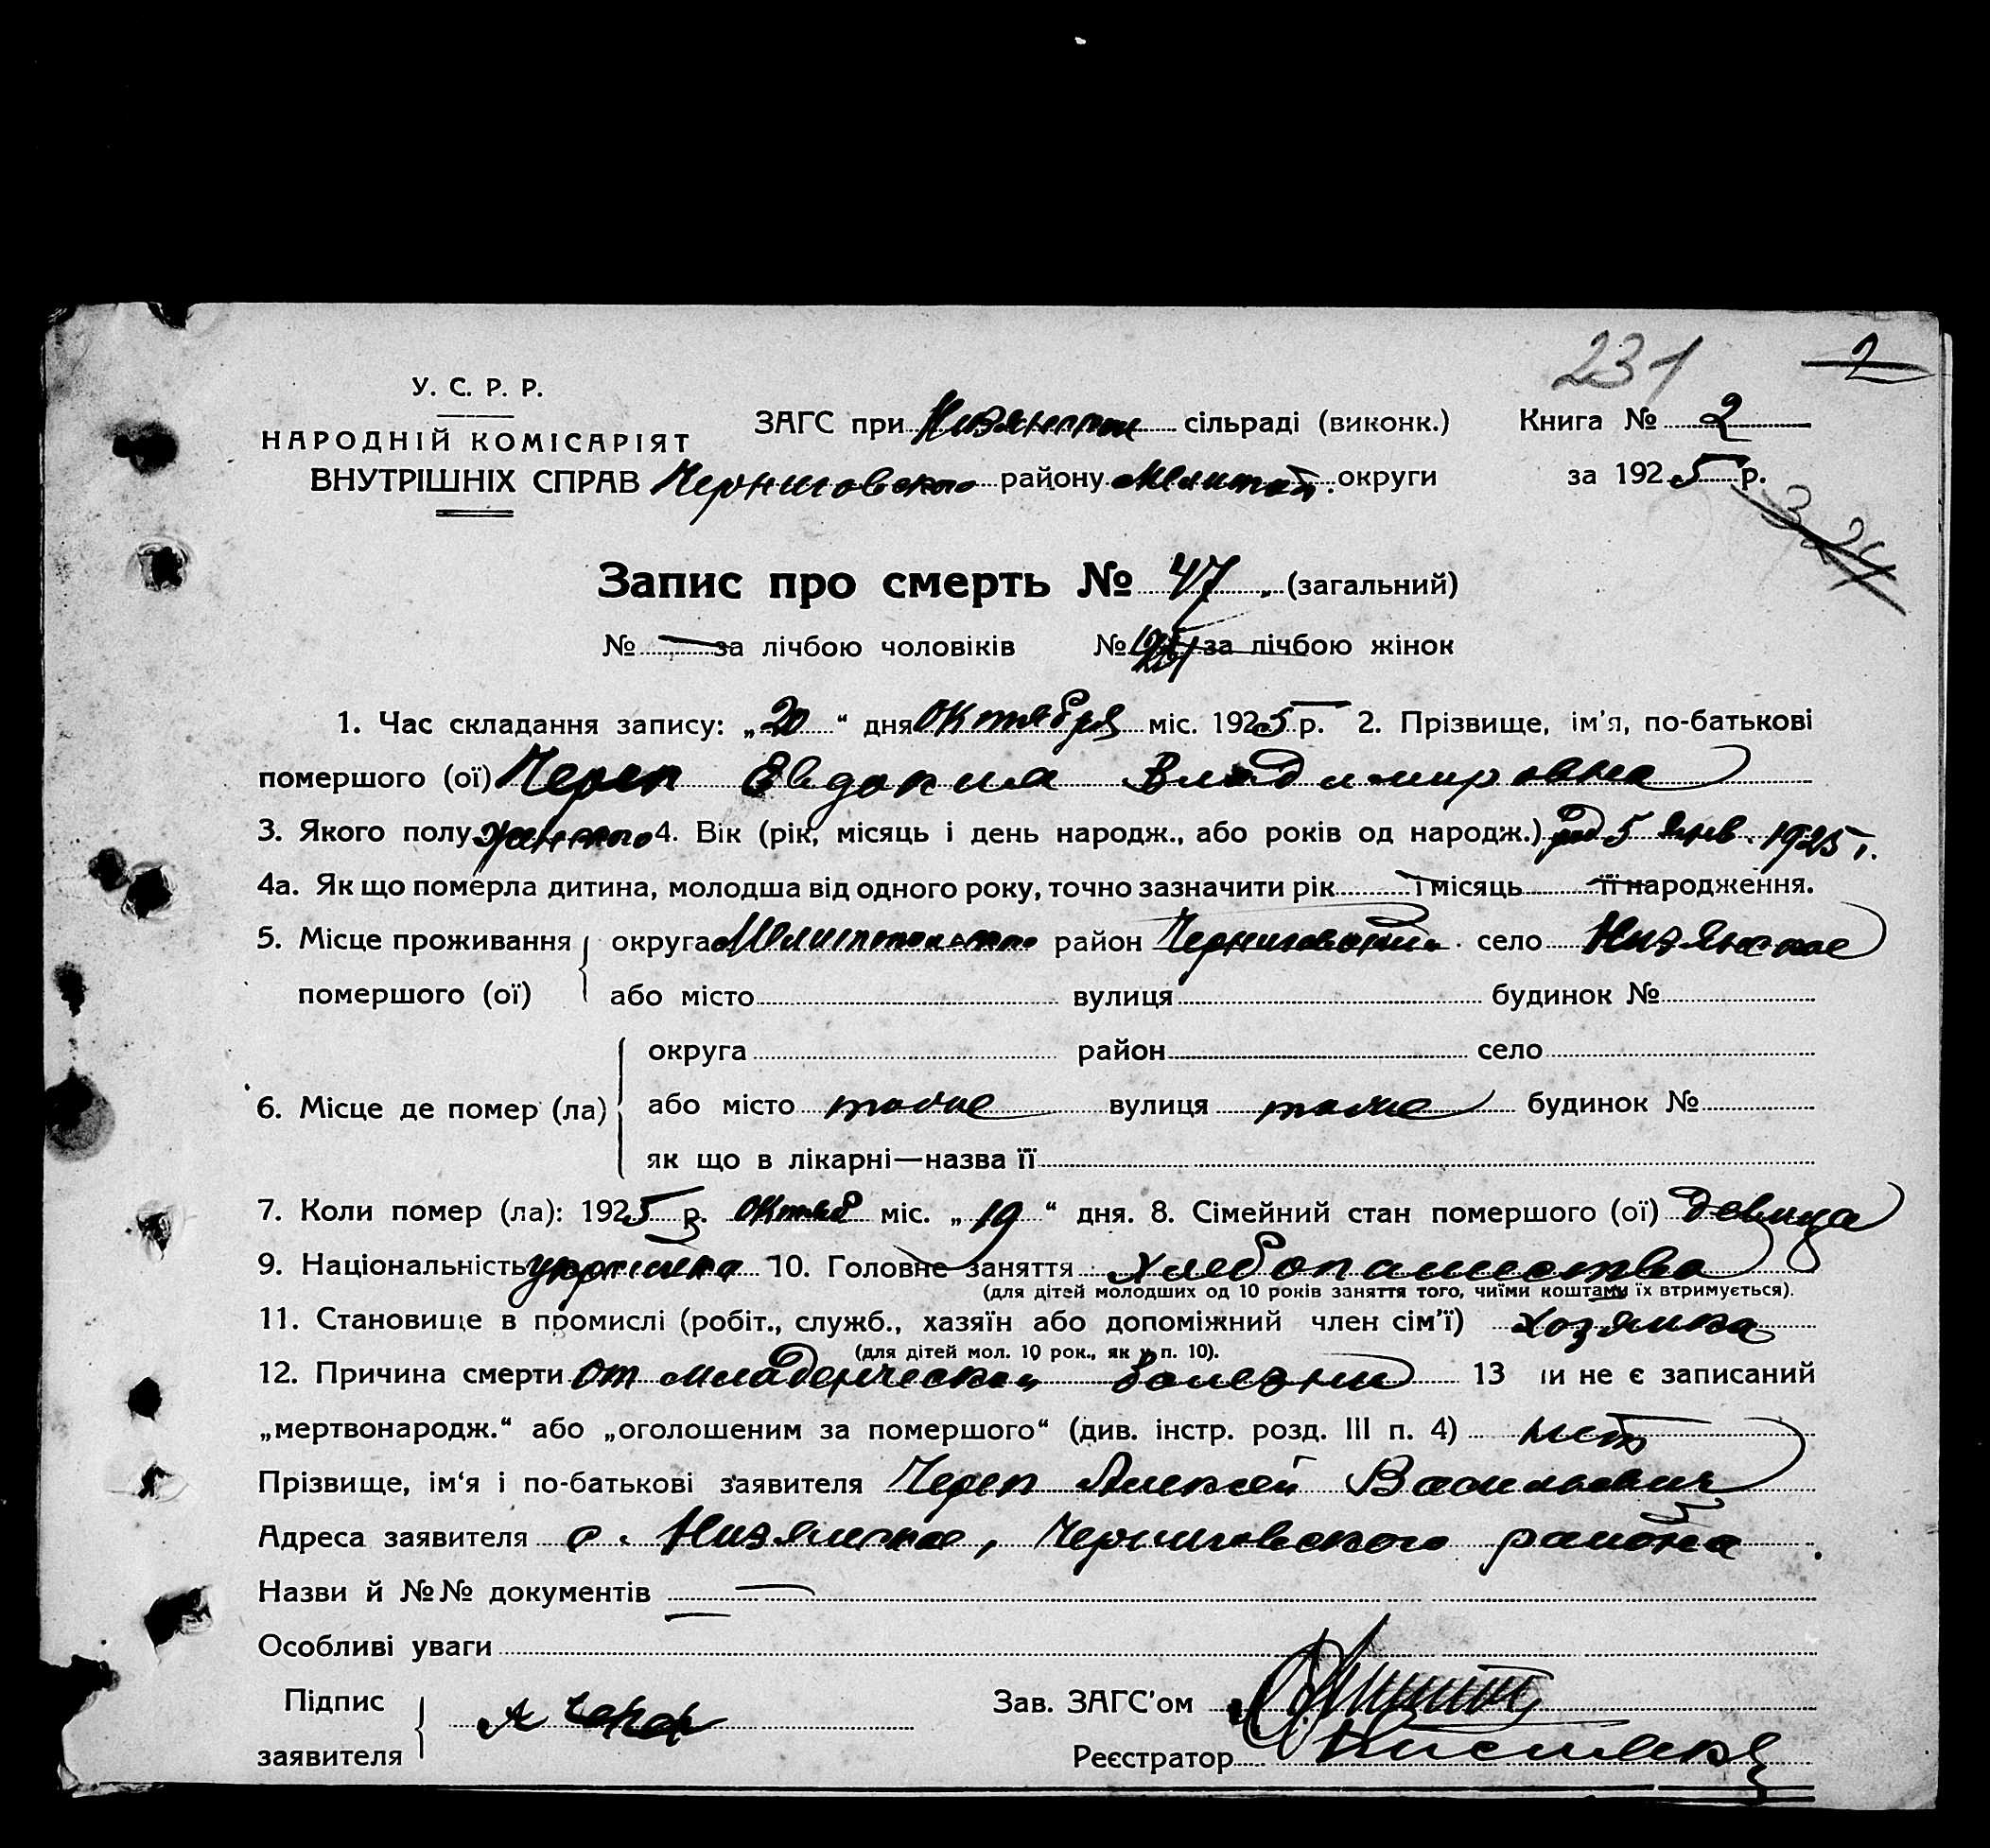 231 2
У. С. Р. Р.
НАРОДНІЙ КОМІСАРІЯТ
ВНУТРІШНІХ СПРАВ
ЗАГС при сільраді (виконк.) Книга № 2
Черниговского району Мелитоп. округи за 1925 р.
3 24
Запис про смерть № 47 (загальний)
№ — за лічбою чоловіків № за лічбою жінок
1. Час складання запису: „20“ дня октября міс. 1925 р. 2. Прізвище, ім'я, по-батькові
помершого (ої) Череп Евдокия Владимировна
3. Якого полу женского 4. Вік (рік, місяць і день народж., або років од народж.) род 5 янв. 1925 г.
4а. Як що померла дитина, молодша від одного року, точно зазначити рік і місяць її народження.
5. Місце проживання округа район Черниговский село Низянское
помершого (ої) або місто вулиця будинок №
округа район село
6. Місце де помер (ла) або місто тоже вулиця тоже будинок №
як що в лікарні—назва її
7. Коли помер (ла): 1925 р. октяб міс. „19“ дня. 8. Сімейний стан помершого (ої) девица
9. Національність украинка 10. Головне заняття хлебопашество
(для дітей молодших од 10 років заняття того, чиїми коштами їх втримується).
11. Становище в промислі (робіт., служб., хазяїн або допоміжний член сім'ї)
(для дітей мол. 10 рок., як у п. 10).
12. Причина смерти от младенческой болезни 13 и не є записаний
„мертвонародж.“ або „оголошеним за помершого“ (див. інстр. розд. III п. 4) нет
Прізвище, ім'я і по-батькові заявителя Череп Алексей Васильевич
Адреса заявителя с. Низянское, Черниговского района.
Назви й №№ документів —
Особливі уваги
Підпис
заявителя А Череп
Зав. ЗАГС'ом
Реєстратор